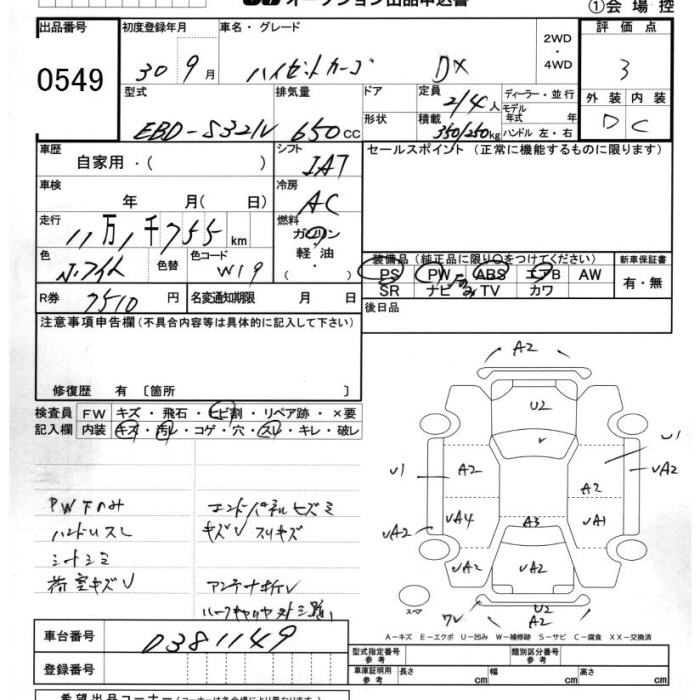 オークション出品申込書
①会場控
出品番号 初度登録年月 車名・グレード 2WD・4WD 評価点
0549 30 9月 ハイゼットカーゴ DX 3
型式 排気量 ドア 定員 2/4人 ディーラー・並行 外装 内装
EBD-S321V 650cc 形状 積載 350/250kg モデル年式 年 D C
ハンドル 左・右
車歴 シフト セールスポイント (正常に機能するものに限ります)
自家用・( ) IAT
車検 年 月(日) 冷房 AC
走行 11万1千755km 燃料 ガソリン・軽油・( )
色 色替 色コード W19
装備品(純正品に限り○をつけてください) 新車保証書
PS PW ABS エアB AW 有・無
SR ナビ TV カワ
R券 7510円 名変通知期限 月 日 後日品
注意事項申告欄(不具合内容等は具体的に記入して下さい)
修復歴 有 〔箇所 〕
検査員 FW キズ・飛石・ヒビ割・リペア跡・×要
記入欄 内装 キズ・汚レ・コゲ・穴・スレ・キレ・破レ
PW下のみ エンドパネルヒズミ
ハンドルスレ キズV スリキズ
シートシミ
荷室キズV
A2
U2
V
U1 A2 U1 VA2
A2
VA2 VA4 A3 VA1
VA2
スペア 7V U2
A2
A-キズ E-エクボ U-凹み W-補修跡 S-サビ C-腐食 XX-交換済
車台番号 0381149
登録番号
型式指定番号 参考 類別区分番号 参考
車庫証明用 参考 長さ 幅 高さ
希望出品コーナー